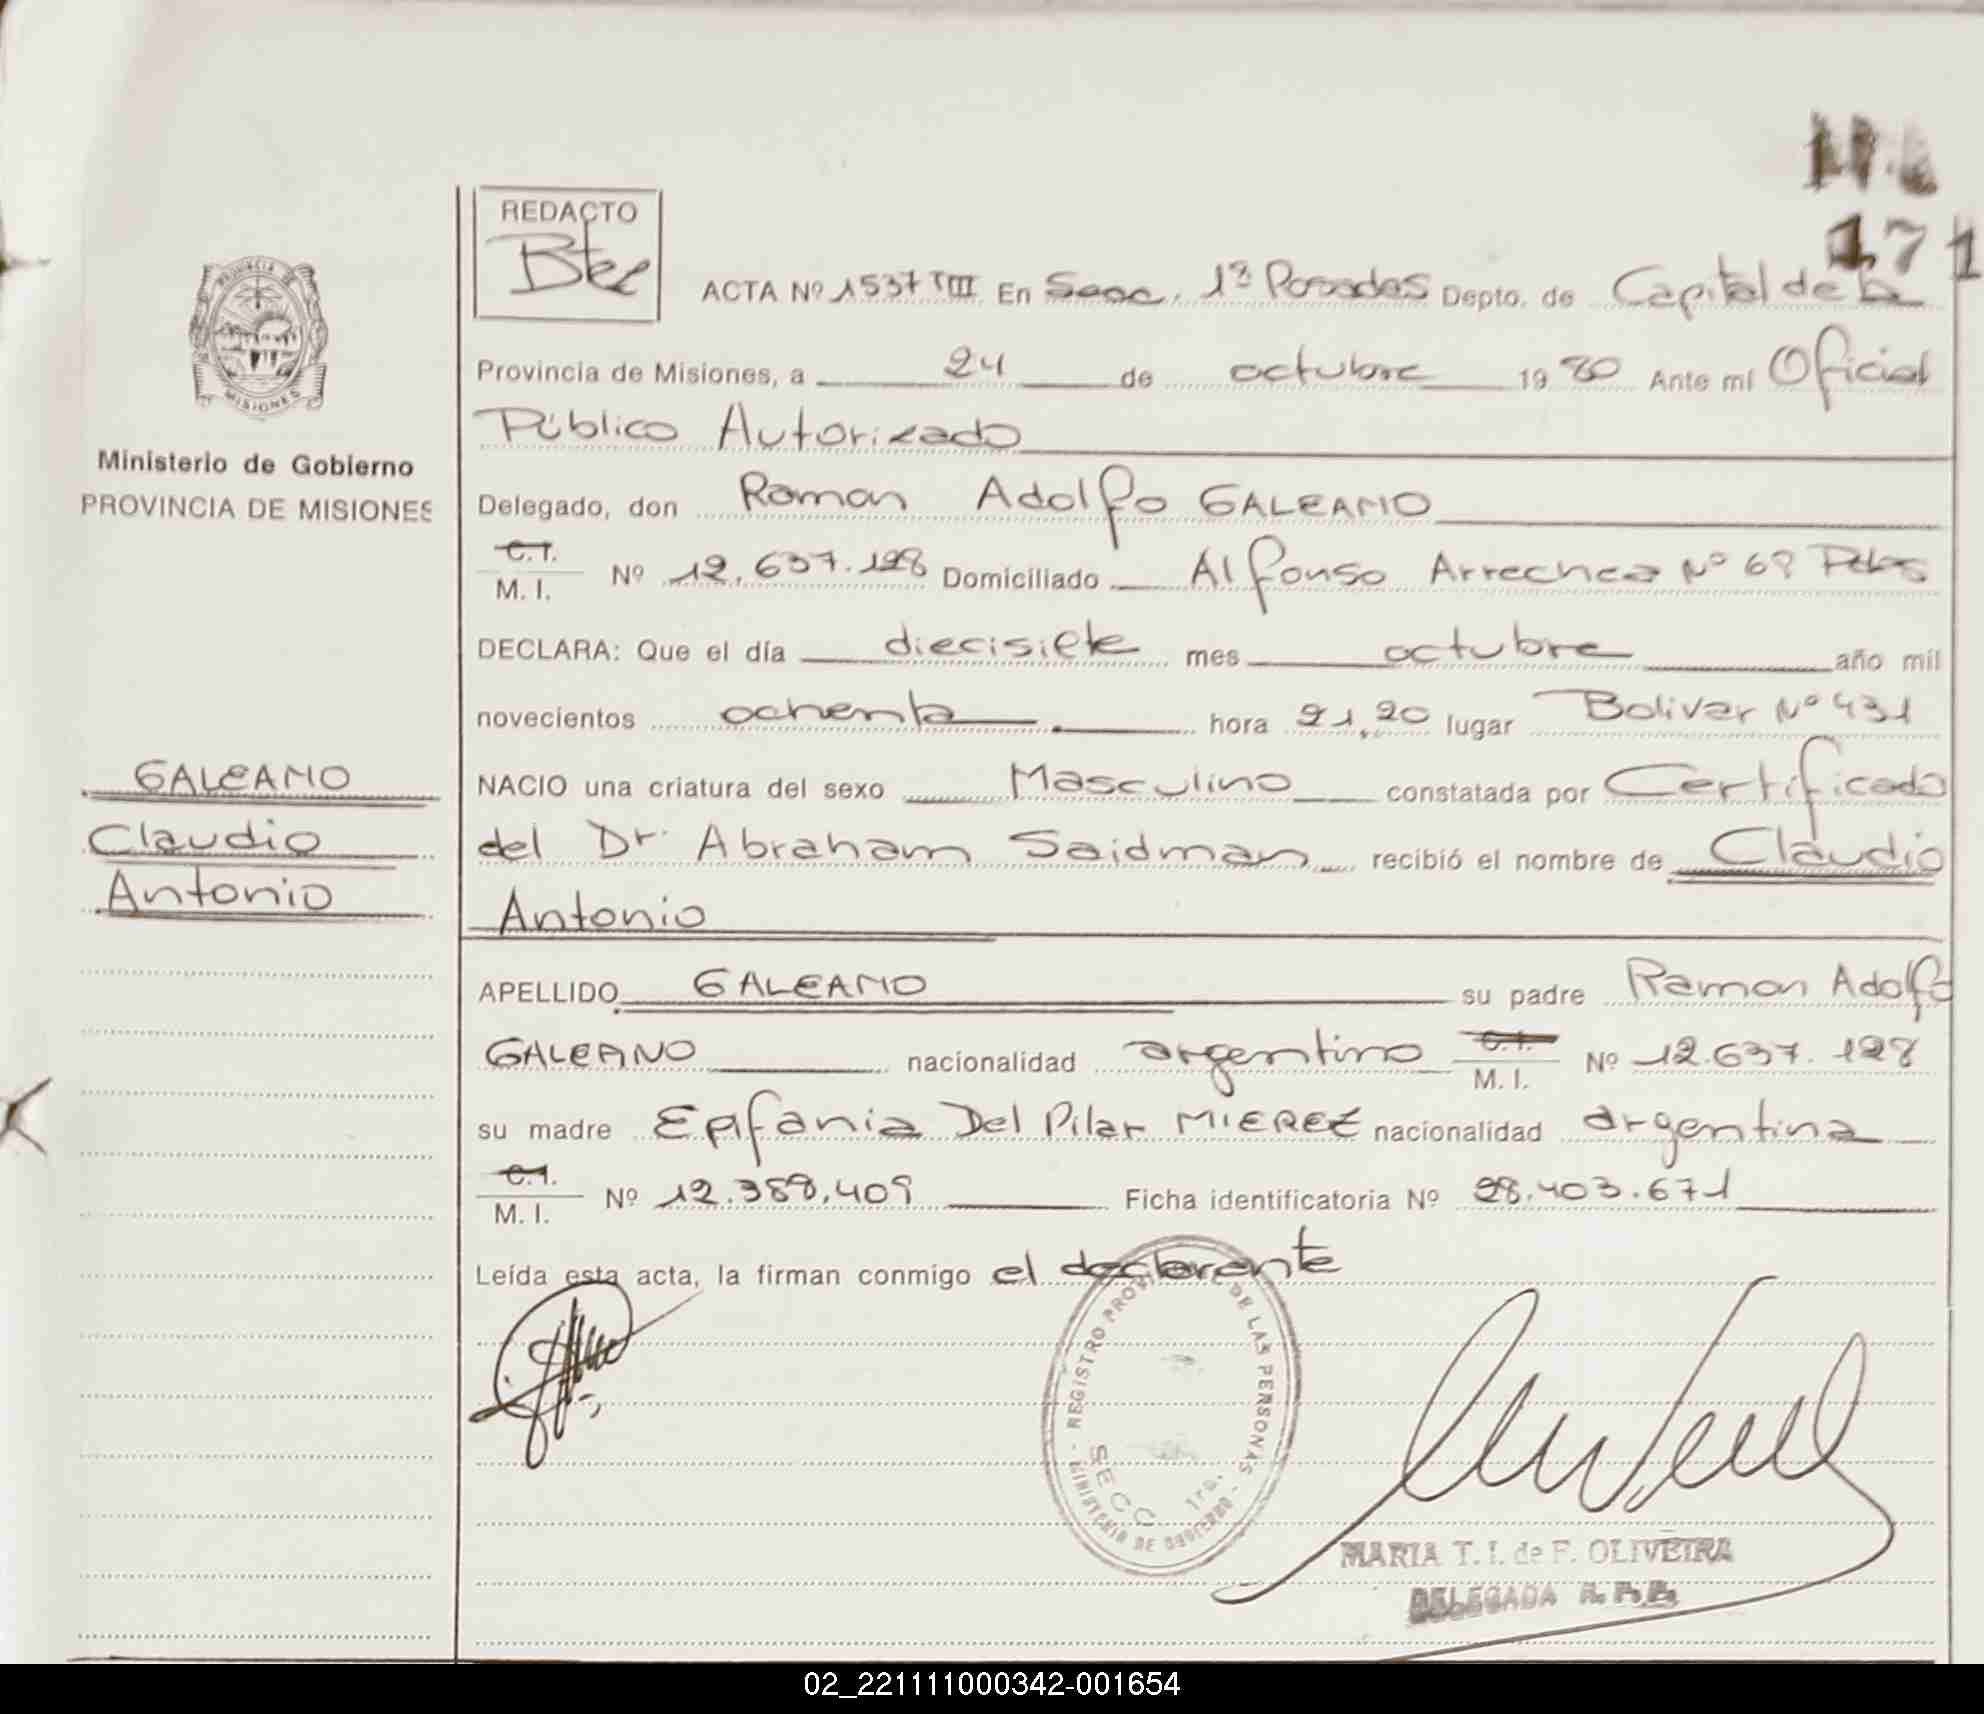 171
REDACTO
ACTA Nº 1537 TIII En Secc. 1ª Posadas Depto. de Capital de la
Provincia de Misiones, a 24 de octubre 1980 Ante mí Oficial
Público Autorizado
Delegado, don Ramon Adolfo GALEANO
C.I.
M. I. Nº 12.637.128 Domiciliado Alfonso Arrechea Nº 69 Pdas
DECLARA: Que el día diecisiete mes octubre año mil
novecientos ochenta hora 21,20 lugar Bolivar Nº 431
NACIO una criatura del sexo Masculino constatada por Certificado
del Dr. Abraham Saidman recibió el nombre de Claudio
Antonio
APELLIDO GALEANO su padre Ramon Adolfo
GALEANO nacionalidad argentino C.I. M. I. Nº 12.637.128
su madre Epifania Del Pilar MIEREZ nacionalidad argentina
C.I.
M. I. Nº 12.388.409 Ficha identificatoria Nº 28.403.671
Leída esta acta, la firman conmigo el declarante
PROVINCIA DE
MISIONES
Ministerio de Gobierno
PROVINCIA DE MISIONES
GALEANO
Claudio
Antonio
REGISTRO PROVINCIAL DE LAS PERSONAS
SECC 1ra.
MINISTERIO DE GOBIERNO
MARIA T. I. de F. OLIVEIRA
DELEGADA R. P. P.
02_221111000342-001654